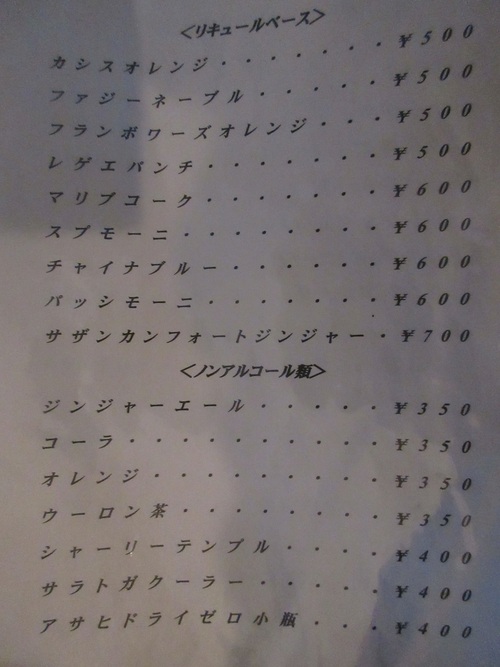 <リキュールベース>
カシスオレンジ・・・・・・・¥500
ファジーネーブル・・・・・¥500
フランボワーズオレンジ・・・¥500
レゲエパンチ・・・・・・・¥500
マリブコーク・・・・・・・¥600
スプモーニ・・・・・・・・¥600
チャイナブルー・・・・・・¥600
パッシモーニ・・・・・・・¥600
サザンカンフォートジンジャー・¥700
<ノンアルコール類>
ジンジャーエール・・・・・¥350
コーラ・・・・・・・・・・¥350
オレンジ・・・・・・・・・¥350
ウーロン茶・・・・・・・・¥350
シャーリーテンプル・・・・¥400
サラトガクーラー・・・・・¥400
アサヒドライゼロ小瓶・・・¥400